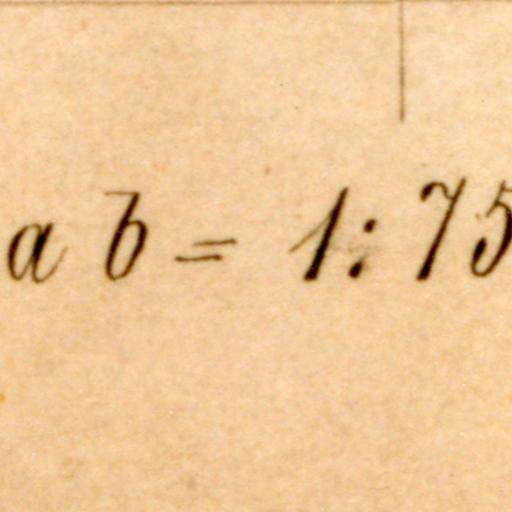 a b = 1:75